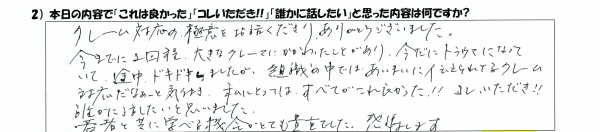 2）本日の内容で「これは良かった」「コレいただき!!」「誰かに話したい」と思った内容は何ですか？
クレーム対応の極意をお話くださり、ありがとうございました。
今までに2回程、大きなクレームにかかわったことがあり、今だにトラウマになって
いて、途中、ドキドキしましたが、組織の中ではあいまいに伝えられてるクレーム
対応だなぁーと気付き、私にとっては、すべてがこれ良かった!! コレいただき!!
誰かに話したいと思いました。
若者と共に学べる機会がとても貴重でした。感謝します